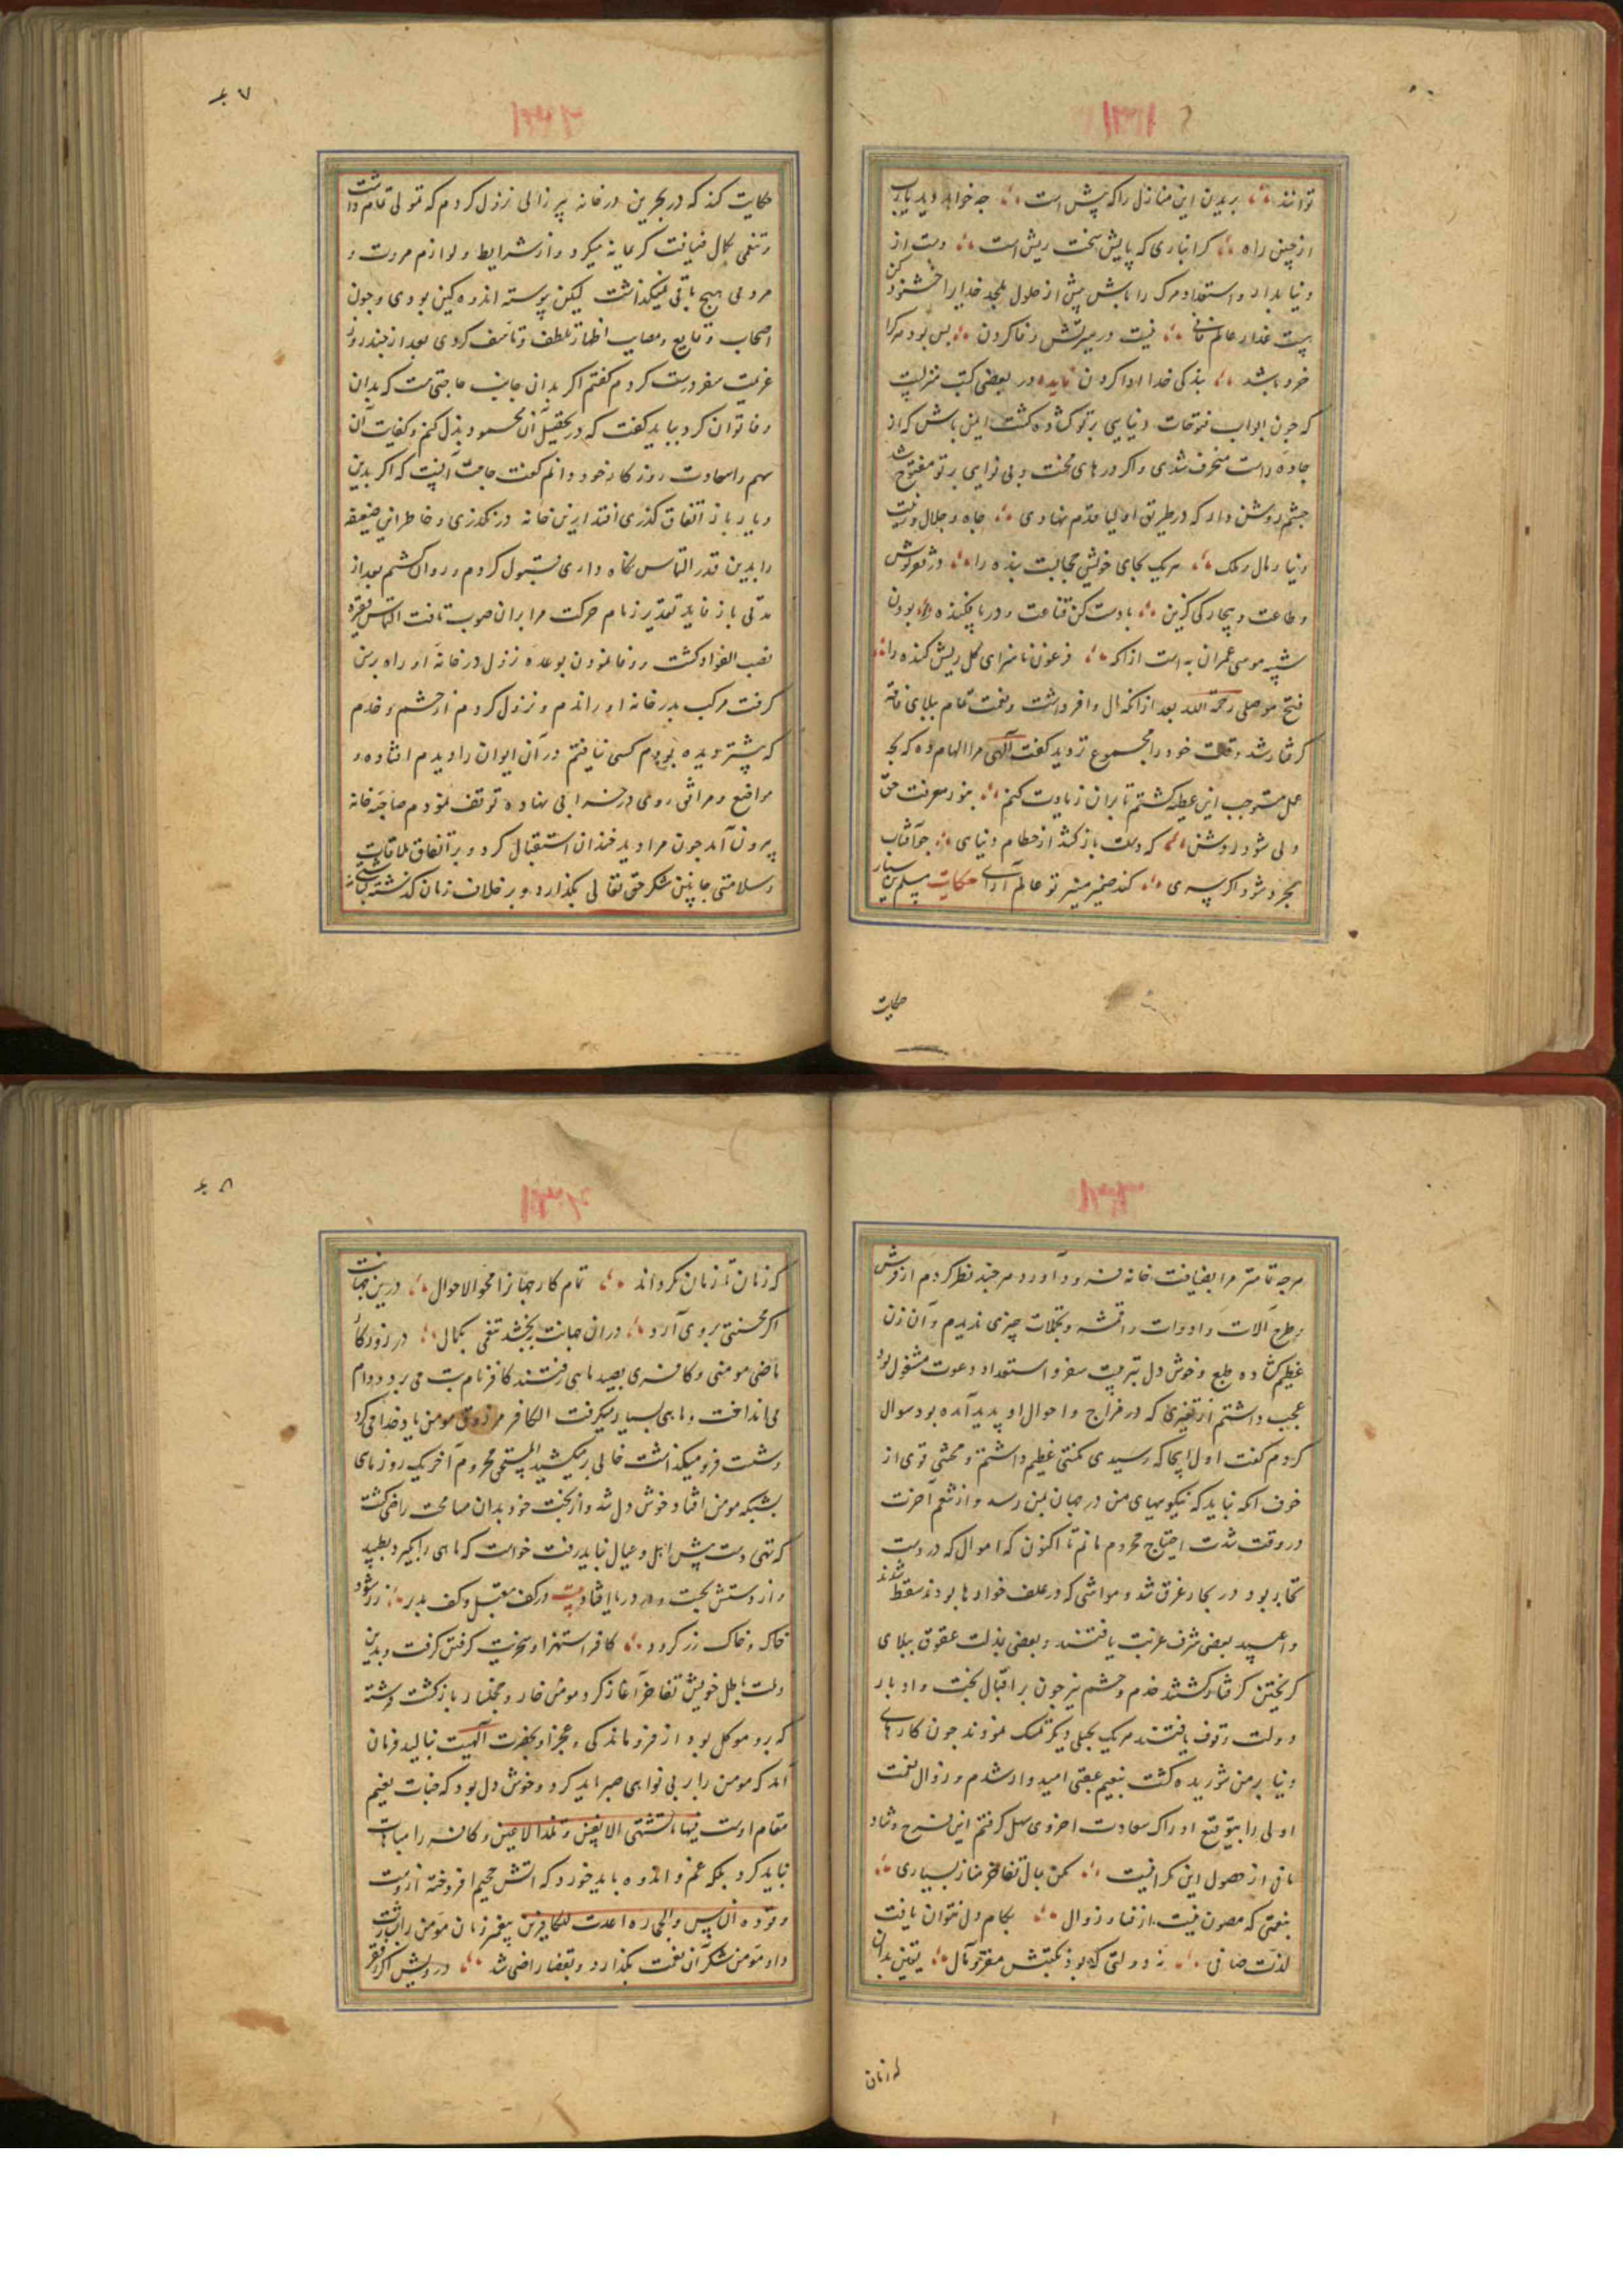 توانند بریدن این منازل را که پیش است چه خواهد دید یارب
از چنین راه کرانباری که پایش سخت ریش است دست از
دنیا بدار و استعداد مرک را باش پیش از حلول بلجد خدایرا خشنود کن
نیست در سرتش وفا کردن بس بود مر کرا
خرد باشد بندکی خدا ادا کردن در بعضی کتب منزلیست
که چون ابواب فتوحات دنیایی بر تو کشاده کشت ایمن باش که از
جاده راست منحرف شدی و اکر درهای محنت و بی نوایی بر تو مفتوح شد
چشم روشن دار که در طریق اولیا قدم نهادی جاه و جلال و زینت
دنیا و مال و ملک هر یک بجای خویش حجابست بنده را
و طاعت و بیچارکی کزین با دست کن قناعت و در پا فکنده بودن
شبیه موسی عمران به است ازانکه فرعون ناسزای کل ریش کنده را
فتح موصلی رحمة الله بعد از انکه مال وافر داشت و نعمت تمام ببلای فاقه
کرفتار شد کفت الهی مرا الهام ده که بچه
عمل مستوجب این عطیه کشتم تا بران زیادت کنم بنور معرفت حق
دلی شود روشن که دست باز کشد از حطام دنیای چو آفتاب
مجرد شو اکر سری کند ضمیر منیر تو عالم آرای حکایت مسلم بن یسار
حکایت
۴۷
حکایت کند که در بحرین در خانه پیر زالی نزول کردم که تمولی تمام داشت
و تنعمی بکمال ضیافت کریمانه میکرد و از شرایط و لوازم مروت و
مردمی هیچ باقی نمیکذاشت لیکن پیوسته اندوهکین بودی و چون
اصحاب وقایع و مصایب اظهار تلطف و تاسف کردی بعد از چند روز
عزیمت سفر درست کردم کفتم اکر بدان جانب حاجتی هست که بدان
وفا توان کرد بباید کفت که در تحصیل آن مجهود بذل کنم و کفایت آن
مهم را سعادت روزکار خود دانم کفت حاجت آنست که اکر بدین
دیار باز اتفاق کذری افتد ازین خانه در نکذری و خاطر این ضعیفه
را بدین قدر التماس نکاه داری قبول کردم و روان کشتم بعد از
مدتی باز قاید تقدیر زمام حرکت مرا بران صوب تافت التماس فقیره
نصب الفواد کشت و وفا نمودن بوعده نزول در خانه او راه برین
کرفت مرکب بدر خانه او راندم و نزول کردم از حشم و خدم
که پیشتر دیده بودم کسی نیافتم در آن ایوان را دیدم افتاده و
مواضع و مرافق روی در خرابی نهاده توقف نمودم صاحبه خانه
بیرون آمد چون مرا دید خندان استقبال کرد و بر اتفاق ملاقات
و سلامتی جانبین شکر حق تعالی بکذارد و بر خلاف زمان کذشته
هرچه تمامتر مرا بضیافت خانه فرود آورد هر چند نظر کردم از فرش
و طرح آلات و ادوات و اقمشه و تجملات چیزی ندیدم و آن زن
عظیم کشاده طبع و خوش دل بترتیب سفره و استعداد دعوت مشغول بود
عجب داشتم از تغیری که در مزاج و احوال او پدید آمده بود سوال
کردم کفت اول اینجا که رسیدی مکنتی عظیم داشتم و محنتی قوی از
خوف انکه نباید که نیکوییهای من در جهان بمن رسد و از تنعم آخرت
در وقت شدت احتیاج محروم مانم تا اکنون که اموال که در دست
تجار بود در بحار غرق شد و مواشی که در علف خوارها بودند سقط شدند
و عبید بعضی شرف عزت یافتند و بعضی بذلت عقوق ببلای
کریختن کرفتار کشتند خدم و حشم نیز چون بر اقبال بخت و ادبار
دولت وقوف یافتند هریک بحبلی دیکر تمسک نمودند چون کارهای
دنیا بر من شوریده کشت بنعیم عقبی امیدوار شدم و زوال نعمت
اولی را بتوقع ادراک سعادت اخروی سهل کرفتم این فرح و شاد
مانی از حصول این کرانیست مکن بمال تفاخر مناز بسیاری
بنعمتی که مصون نیست از فنا و زوال بکام دل نتوان یافت
لذت صافی ز دولتی که بود نکبتش مقرر مآل یقین بدان
که زمان
۴۸
که زمان تا زمان بکرداند تمام کار جهانرا محول الاحوال درین جهانت
اکر محنتی بروی آرد دران جهانت ببخشد تنعمی بکمال در روزکار
ماضی مومنی و کافری بصید ماهی رفتند کافر نام بت می برد و دام
می انداخت و ماهی بسیار میکرفت الکافر مرزوق مومن یاد خدا می کرد
و شست فرو میکذاشت خالی بر میکشید المستقی محروم آخر یک روز ماهی
بشبکه مومن افتاد خوش دل شد و از بخت خود بدان مسامحت راضی کشت
که تهی دست پیش اهل و عیال نباید رفت خواست که ماهی را بکیرد بطپید
و از دستش بجست و در دریا افتاد بیت در کف مقبل و کف مدبر زر شود
خاک و خاک زر کردد کافر استهزا و سخریت کرفتن کرفت و بدین
دولت باطل خویش تفاخر آغاز کرد و مومن خوار و خجلسار بازکشت فرشته
که برو موکل بود از فروماندکی و عجز او بحضرت الهیت بنالید فرمان
آمد که مومن را بر بی نوایی صبر باید کرد و خوش دل بود که جنات نعیم
مقام اوست فیها ما تشتهی الانفس و تلذ الاعین و کافر را مباهات
نباید کرد بلکه غم و اندوه باید خورد که آتش جحیم افروخته ازوست
وقوده الناس والحجارة اعدت للکافرین پیغمبر زمان مومن را بشارت
داد مومن شکر آن نعمت بکذارد و بقضا راضی شد درویش اکر ز فقر